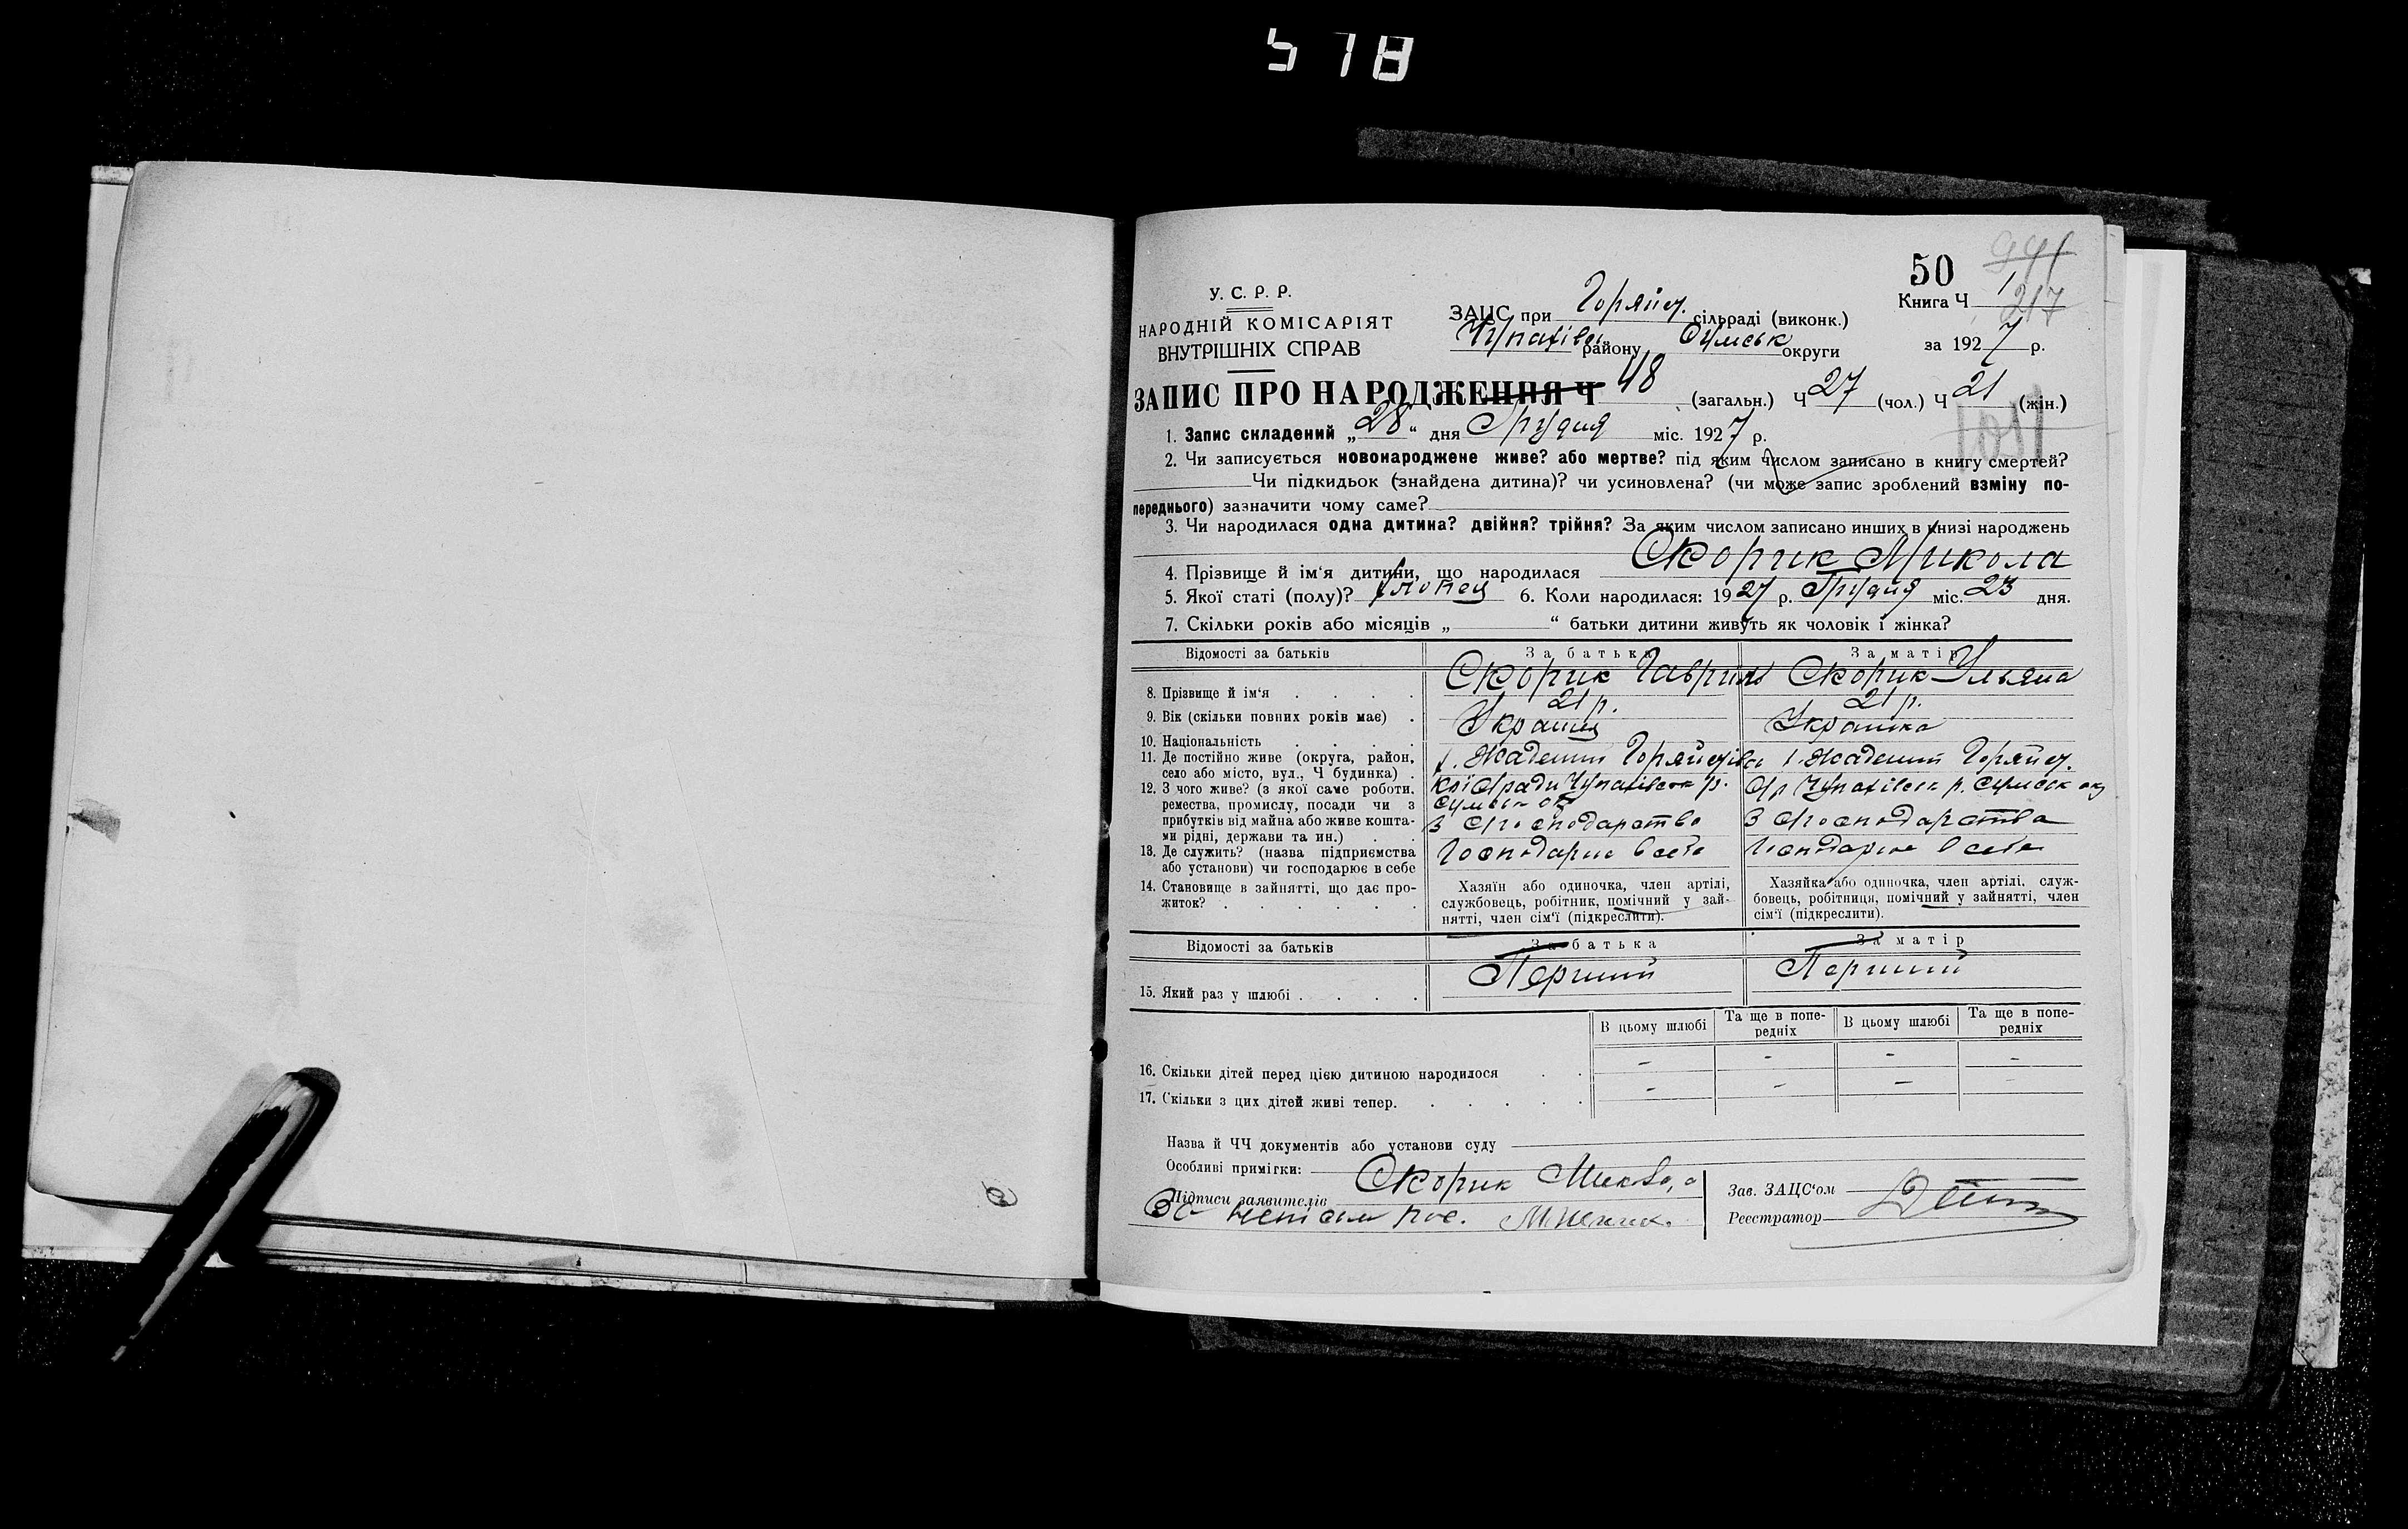 578
50
У. С. Р. Р.
НАРОДНІЙ КОМІСАРІЯТ
ВНУТРІШНІХ СПРАВ
ЗАЦС при Горяйст. сільраді (виконк.)
Чупахівс. району Сумськ округи
Книга Ч 1
217
за 1927 р.
ЗАПИС ПРО НАРОДЖЕННЯ Ч 48 (загальн.) Ч 27 (чол.) Ч 21 (жін.)
1. Запис складений „28“ дня Грудня міс. 1927 р.
2. Чи записується новонароджене живе? або мертве? під яким числом записано в книгу смертей?
Чи підкидьок (знайдена дитина)? чи усиновлена? (чи може запис зроблений взміну по-
переднього) зазначити чому саме?
3. Чи народилася одна дитина? двійня? трійня? За яким числом записано инших в книзі народжень
4. Прізвище й ім‘я дитини, що народилася Скорик Микола
5. Якої статі (полу)? хлопец 6. Коли народилася: 1927 р. Грудня міс. 23 дня.
7. Скільки років або місяців „ “ батьки дитини живуть як чоловік і жінка?
Відомості за батьків За батька За матір
8. Прізвище й ім‘я . . . . Скорик Гаврило Скорик Ульяна
9. Вік (скільки повних років має) . 21 р. 21 р.
10. Національність . . . . Украинц Украинка
11. Де постійно живе (округа, район,
село або місто, вул., Ч будинка) .
12. З чого живе? (з якої саме роботи,
ремества, промислу, посади чи з
прибутків від майна або живе кошта-
ми рідні, держави та ин.) . .
З господарства З господарства
13. Де служить? (назва підприємства
або установи) чи господарює в себе
Господарює в себе Господарює в себе
14. Становище в зайнятті, що дає про-
житок? . . . . . .
Хазяїн або одиночка, член артілі,
службовець, робітник, помічний у зай-
нятті, член сім‘ї (підкреслити).
Хазяйка або одиночка, член артілі, служ-
бовець, робітниця, помічний у зайнятті, член
сім‘ї (підкреслити).
Відомості за батьків За батька За матір
15. Який раз у шлюбі . . . . Перший Перший
В цьому шлюбі Та ще в попе-
редніх В цьому шлюбі Та ще в попе-
редніх
16. Скільки дітей перед цією дитиною народилося . . - - - -
17. Скільки з цих дітей живі тепер. . . . . . - - - -
Назва й ЧЧ документів або установи суду
Особливі примітки:
Підписи заявителів Скорик
Зав. ЗАЦС‘ом
Реєстратор